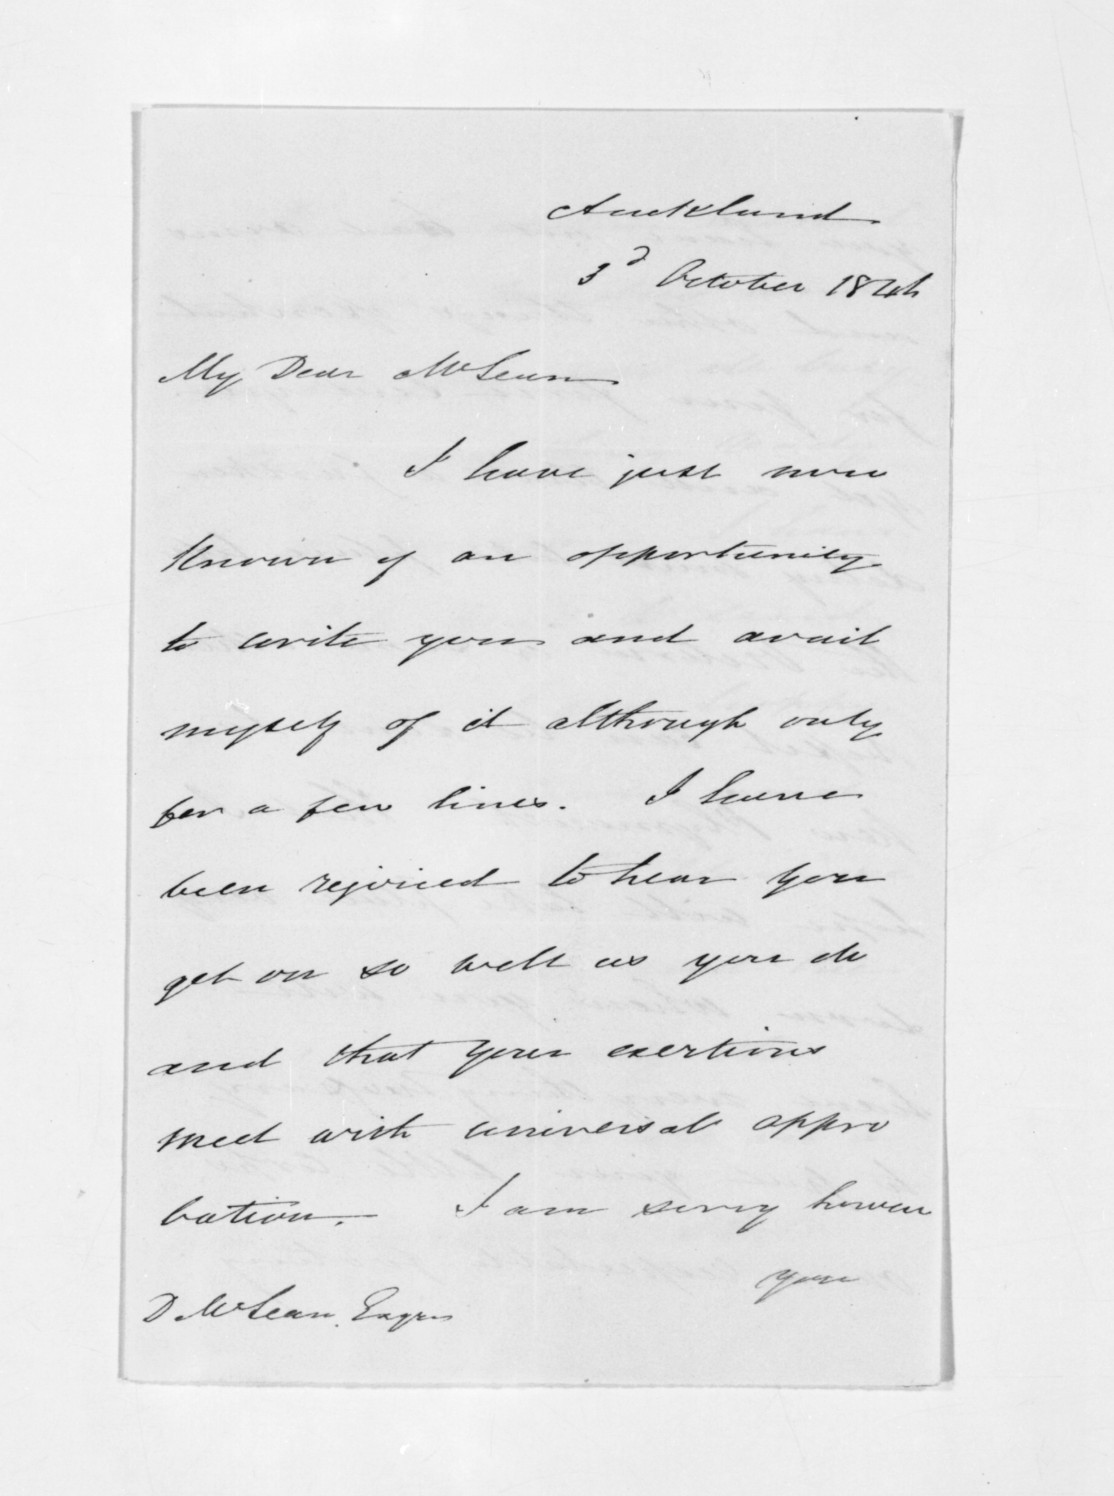 Auckland
3d October 1844
My Dear McLean
I have just now
known of an opportunity
to write you and avail
myself of it although only
for a few lines. I have
been rejoiced to hear you
get on so well as you do
and that your exertions
meet with universal appro
bation. I am sorry however
you
D McLean. Esqre